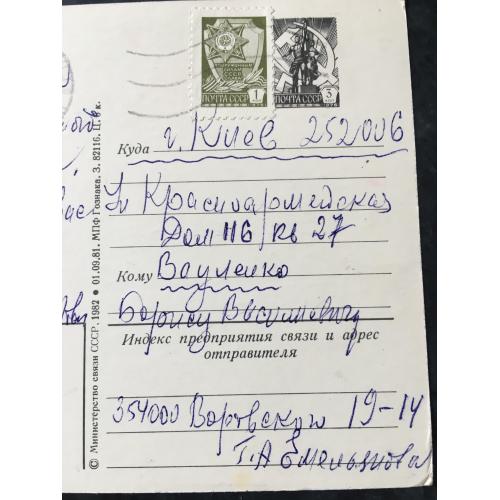 ВООРУЖЕННЫЕ СИЛЫ СССР
ПОЧТА СССР 1
ПОЧТА СССР 3
Куда г. Киев 252006
ул Красноармейская
Дом 116/кв 27
Кому Вауленко
Борису Василиевичу
Индекс предприятия связи и адрес
отправителя
354000 Воровского 19-14
Т.А Емельянова
© Министерство связи СССР. 1982 ● 01.09.81. МПФ Гознака. З. 82116. Ц. к.